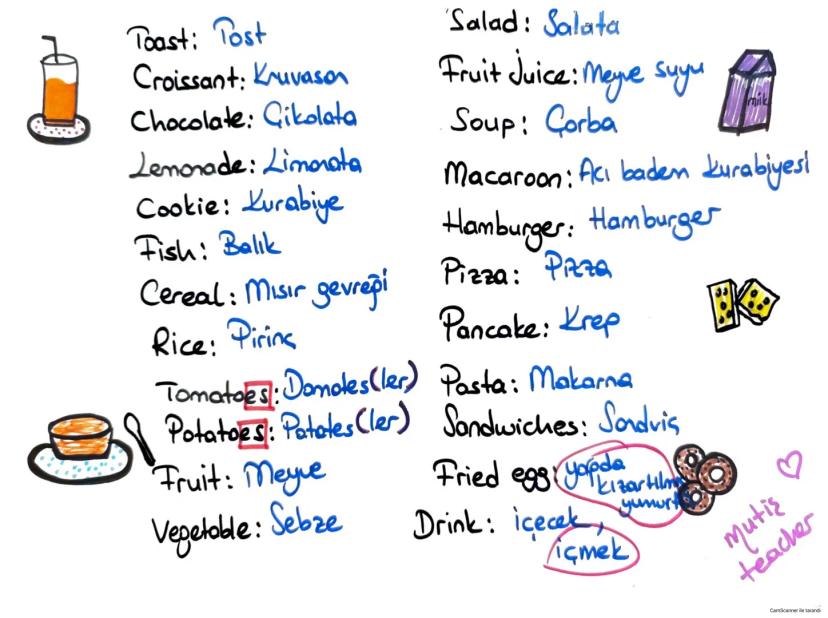 Toast: Tost
Croissant: Kruvasan
Chocolate: Çikolata
Lemonade: Limonata
Cookie: Kurabiye
Fish: Balık
Cereal: Mısır gevreği
Rice: Pirinç
Tomatoes: Domates(ler)
Potatoes: Patates(ler)
Fruit: Meyve
Vegetable: Sebze
Salad: Salata
Fruit Juice: Meyve suyu
milk
Soup: Çorba
Macaroon: Acı badem kurabiyesi
Hamburger: Hamburger
Pizza: Pizza
Pancake: Krep
Pasta: Makarna
Sandwiches: Sandviç
Fried egg: yağda
kızartılmış
yumurta
Drink: içecek,
içmek
Mutiş
teacher
CamScanner ile tarandı